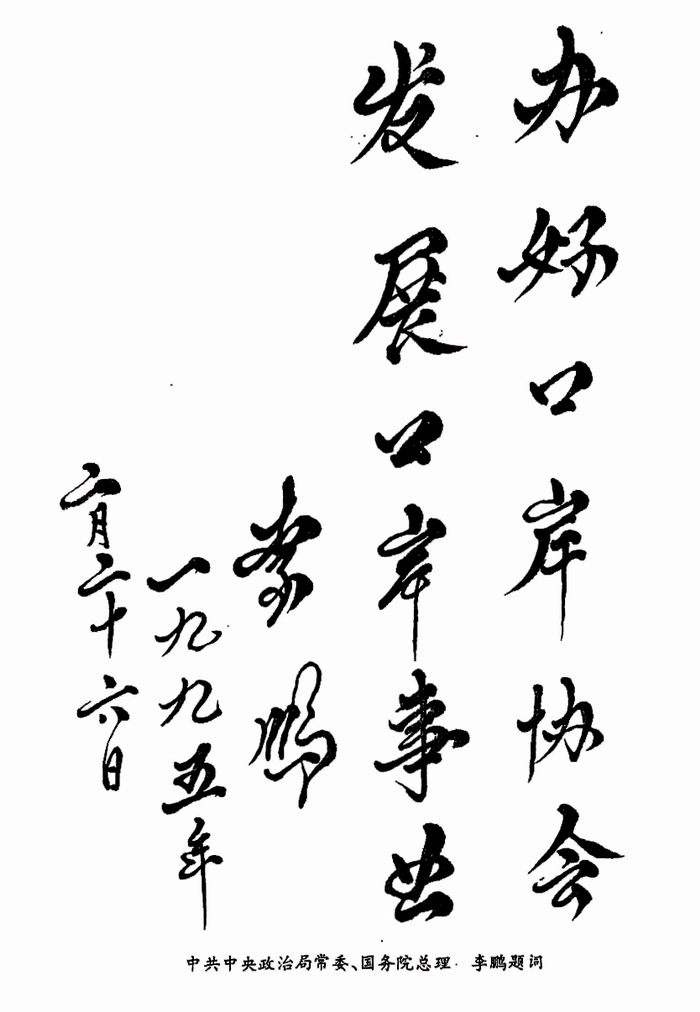 办好口岸协会
发展口岸事业
李鹏
一九九五年
六月二十六日
中共中央政治局常委、国务院总理 李鹏题词